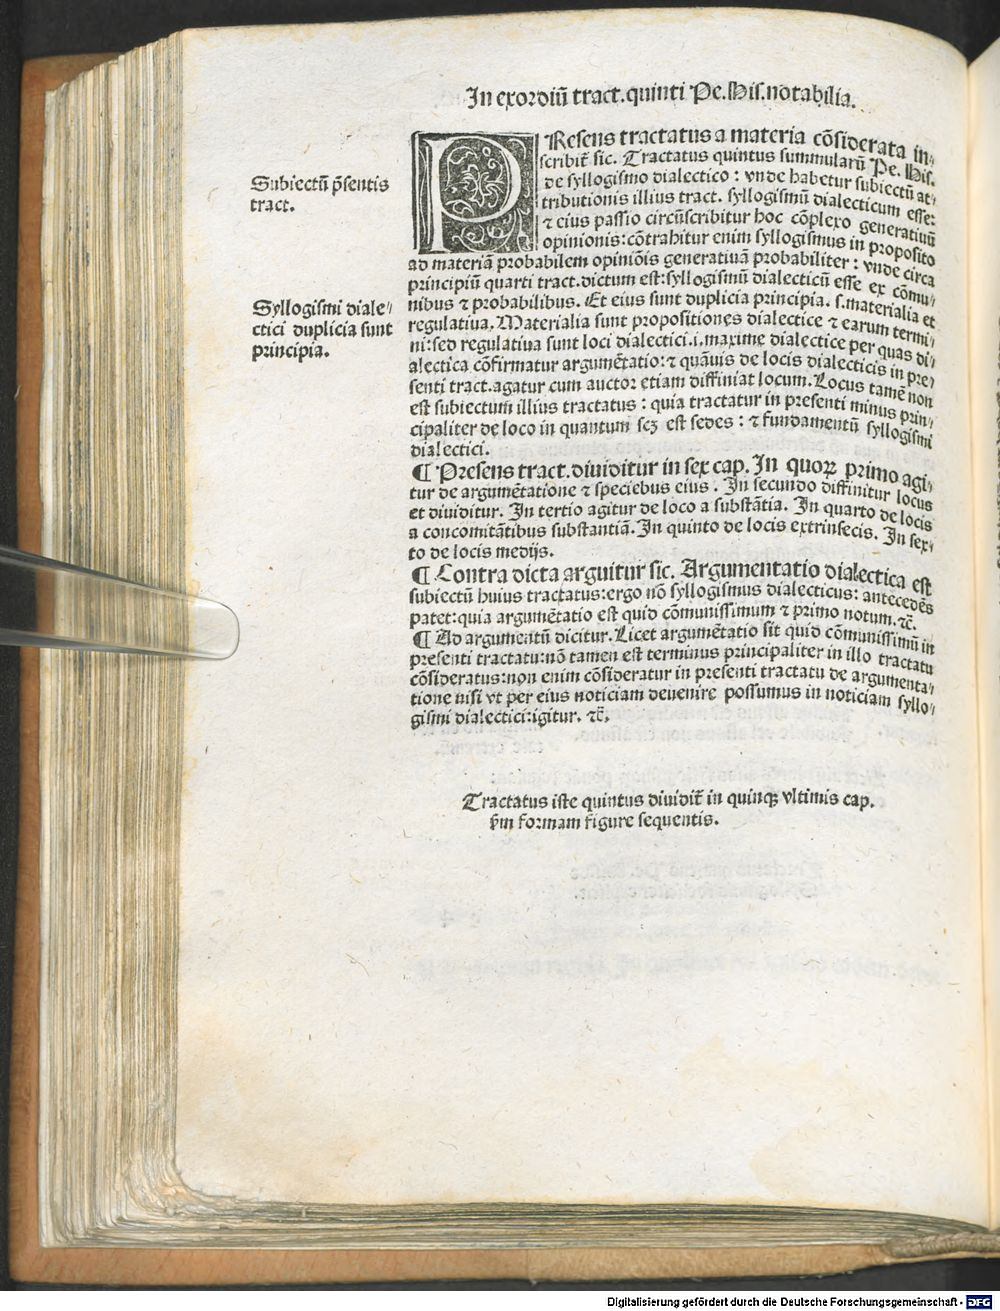 In exordiū tract.quinti Pe.His.notabilia.
PResens tractatus a materia cōsiderata in⸗
scribit̄ sic. Tractatus quintus summularū Pe. His.
de syllogismo dialectico : vnde habetur subiectū at⸗
tributionis illius tract. syllogismū dialecticum esse:
⁊ eius passio circūscribitur hoc cōplexo generatiuū
opinionis:cōtrahitur enim syllogismus in proposito
ad materiā probabilem opiniōis generatiuā probabiliter : vnde circa
principiū quarti tract.dictum est:syllogismū dialecticū esse ex cōmu⸗
nibus ⁊ probabilibus. Et eius sunt duplicia principia. s.materialia et
regulatiua. Materialia sunt propositiones dialectice ⁊ earum termi⸗
ni:sed regulatiua sunt loci dialectici.i.maxime dialectice per quas di⸗
alectica cōfirmatur argumētatio:⁊ quāuis de locis dialecticis in pre⸗
senti tract.agatur cum auctor etiam diffiniat locum. Locus tamē non
est subiectum illius tractatus : quia tractatur in presenti minus prin⸗
cipaliter de loco in quantum scꝫ est sedes : ⁊ fundamentū syllogismi
dialectici.
¶ Presens tract.diuiditur in sex cap. In quoꝝ primo agi⸗
tur de argumētatione ⁊ speciebus eius . In secundo diffinitur locus
et diuiditur. In tertio agitur de loco a substātia. In quarto de locis
a concomitātibus substantiā. In quinto de locis extrinsecis. In sex⸗
to de locis medijs.
¶ Contra dicta arguitur sic. Argumentatio dialectica est
subiectū huius tractatus:ergo nō syllogismus dialecticus: antecedēs
patet:quia argumētatio est quid cōmunissimum ⁊ primo notum.⁊c̄.
¶ Ad argumentū dicitur. Licet argumētatio sit quid cōmunissimū in
presenti tractatu:nō tamen est terminus principaliter in illo tractatu
cōsideratus:non enim cōsideratur in presenti tractatu de argumenta⸗
tione nisi vt per eius noticiam deuenire possumus in noticiam syllo⸗
gismi dialectici:igitur. ⁊c̄.
Tractatus iste quintus diuidit̄ in quinqꝫ vltimis cap.
ẜm formam figure sequentis.
Subiectū p̄sentis
tract.
Syllogismi diale⸗
ctici duplicia sunt
principia.
Digitalisierung gefördert durch die Deutsche Forschungsgemeinschaft - DFG